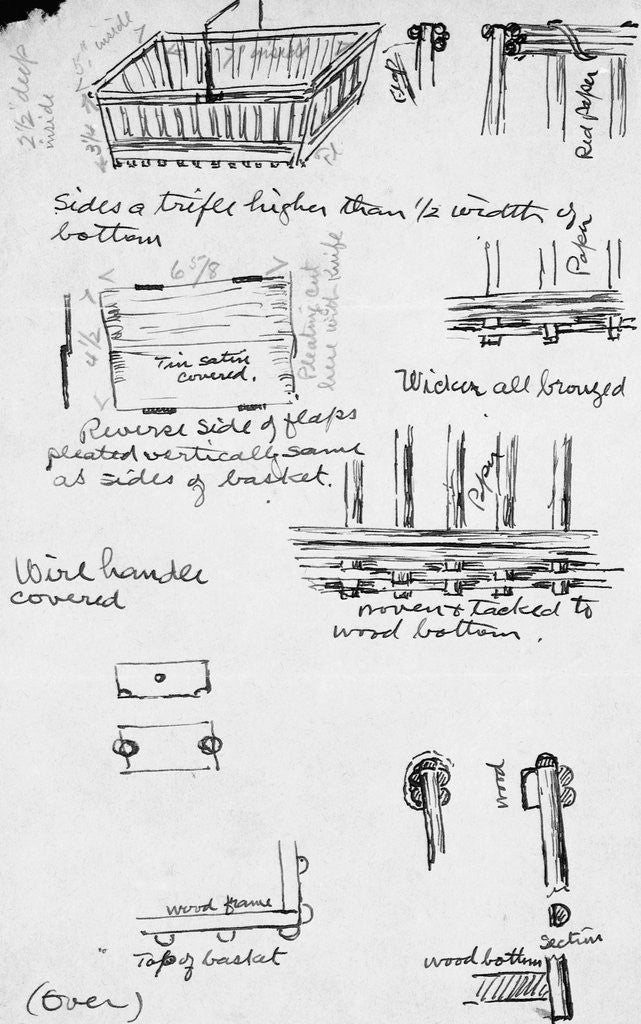 5" inside
7 inside
2 1/2" deep
inside
3 1/4
Flap
Red paper
Sides a trifle higher than 1/2 width of
bottom
Paper
6 5/8
4 1/2
Pleating cut
here with knife
Tin satin
covered.
Wicker all bronzed
Reverse side of flaps
pleated vertically same
as sides of basket.
Paper
Wire handle
covered
woven & tacked to
wood bottom.
wood
wood frame
Top of basket
Section
wood bottom
(Over)